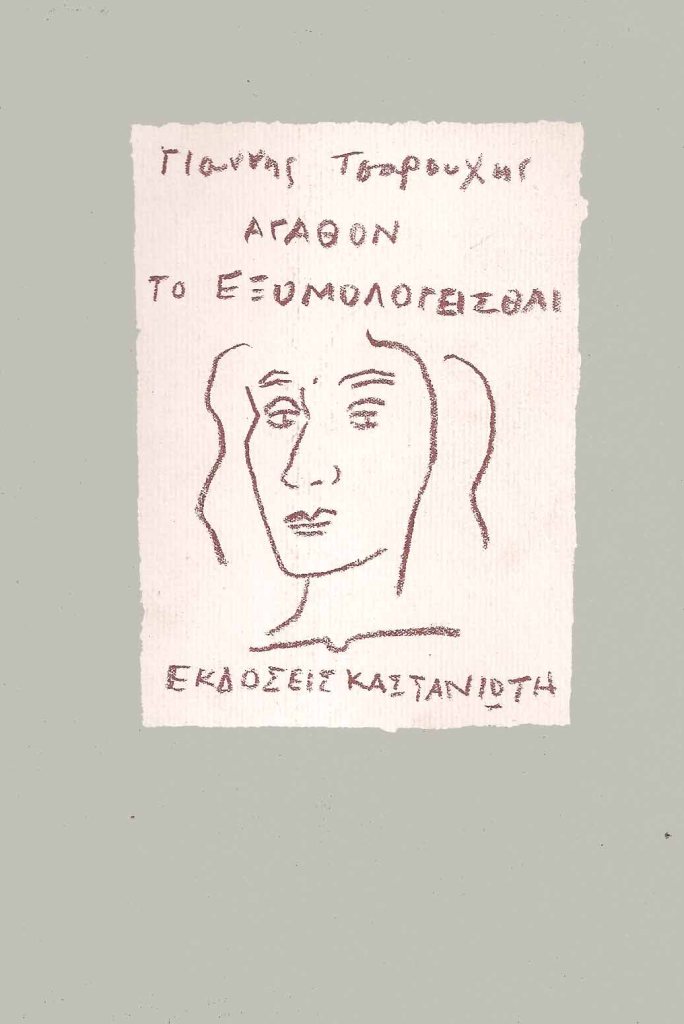 Γιαννης Τσαρουχης
ΑΓΑΘΟΝ
ΤΟ ΕΞΟΜΟΛΟΓΕΙΣΘΑΙ
ΕΚΔΟΣΕΙΣ ΚΑΣΤΑΝΙΩΤΗ